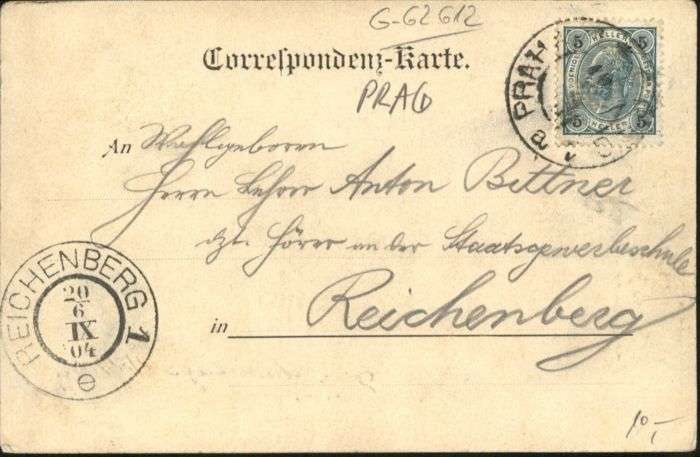 G-62 612
Correspondenz-Karte.
PRAG
5 HELLER 5
5 HELLER 5
PRAH
An Wohlgeboren
Herrn Lehrer Anton Bittner
dzt. Hörer an der Staatsgewerbeschule
in Reichenberg
REICHENBERG 1
20
6
IX
04
10,-